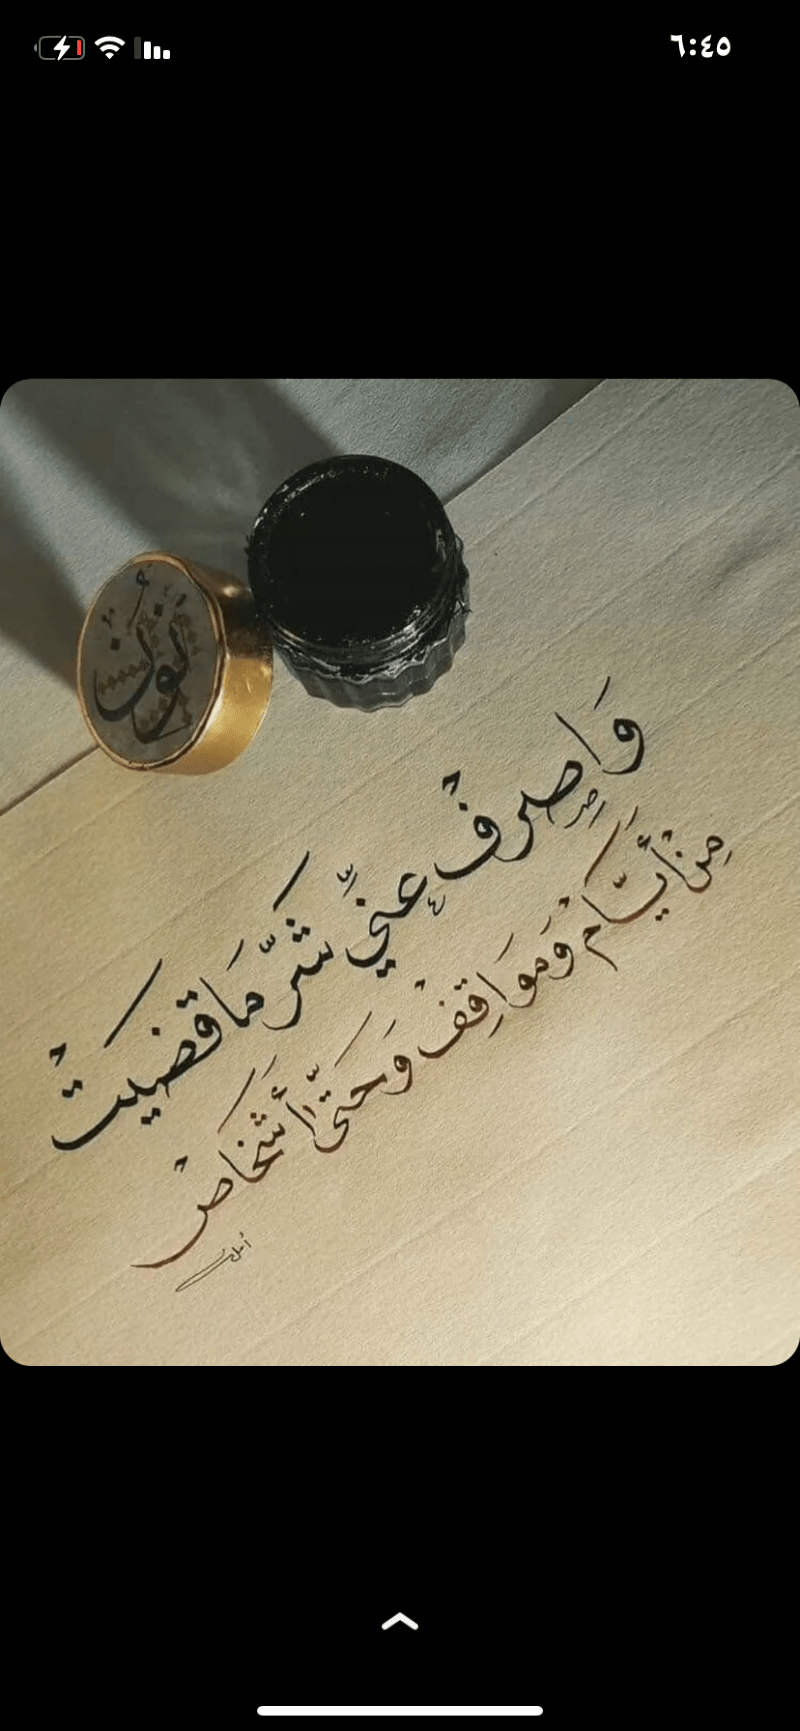 ٦:٤٥
نون
وَاصْرِفْ عَنِّي شَرَّ مَا قَضَيْتْ
مِنْ أَيَّامْ وَمَوَاقِفْ وَحَتَّى أَشْخَاصْ
أمل